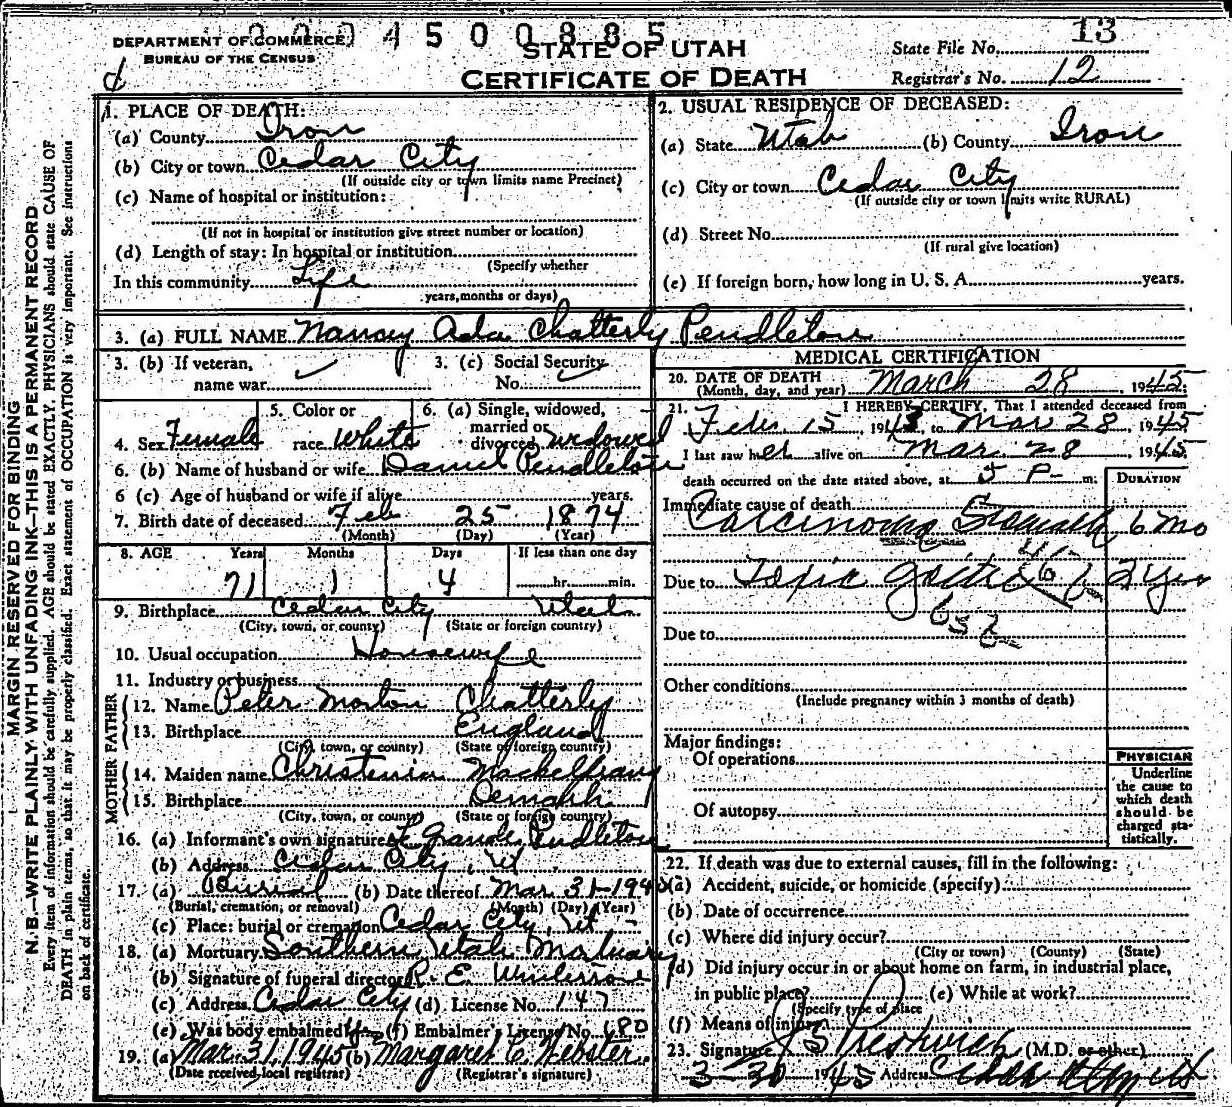 DEPARTMENT OF COMMERCE
BUREAU OF THE CENSUS
0004500885
STATE OF UTAH
CERTIFICATE OF DEATH
State File No. 13
Registrar's No. 12
MARGIN RESERVED FOR BINDING
N. B.—WRITE PLAINLY WITH UNFADING INK—THIS IS A PERMANENT RECORD
Every item of information should be carefully supplied. AGE should be stated EXACTLY. PHYSICIANS should state CAUSE OF
DEATH in plain terms, so that it may be properly classified. Exact statement of OCCUPATION is very important. See instructions
on back of certificate.
1. PLACE OF DEATH:
(a) County Iron
(b) City or town Cedar City
(If outside city or town limits name Precinct)
(c) Name of hospital or institution:
(If not in hospital or institution give street number or location)
(d) Length of stay: In hospital or institution
(Specify whether
In this community Life
years, months or days)
2. USUAL RESIDENCE OF DECEASED:
(a) State Utah (b) County Iron
(c) City or town Cedar City
(If outside city or town limits write RURAL)
(d) Street No.
(If rural give location)
(e) If foreign born, how long in U. S. A. years.
3. (a) FULL NAME Nancy Ada Chatterly Pendleton
3. (b) If veteran,
name war
3. (c) Social Security
No.
4. Sex Female
5. Color or
race White
6. (a) Single, widowed,
married or
divorced widowed
6. (b) Name of husband or wife Daniel Pendleton
6 (c) Age of husband or wife if alive years.
7. Birth date of deceased Feb 25 1874
(Month) (Day) (Year)
8. AGE Years Months Days If less than one day
71 1 4 hr. min.
9. Birthplace Cedar City Utah
(City, town, or county) (State or foreign country)
10. Usual occupation Housewife
11. Industry or business
FATHER
12. Name Peter Morton Chatterly
13. Birthplace England
(City, town, or county) (State or foreign country)
MOTHER
14. Maiden name Christenia Mackelprang
15. Birthplace Demark
(City, town, or county) (State or foreign country)
16. (a) Informant's own signature LeGrande Pendleton
(b) Address Cedar City, Ut.
17. (a) Burial (b) Date thereof Mar. 31-1945
(Burial, cremation, or removal) (Month) (Day) (Year)
(c) Place: burial or cremation Cedar City, Ut -
18. (a) Mortuary Southern Utah Mortuary
(b) Signature of funeral director R. E.
(c) Address Cedar City (d) License No. 147
(e) Was body embalmed yes (f) Embalmer's License No. 180
19. (a) Mar. 31, 1945 (b) Margaret C. Webster
(Date received local registrar) (Registrar's signature)
MEDICAL CERTIFICATION
20. DATE OF DEATH
(Month, day, and year) March 28 1945
21. I HEREBY CERTIFY, That I attended deceased from
Feb. 15, 1943, to Mar 28, 1945
I last saw her alive on Mar. 28, 1945
death occurred on the date stated above, at 5 P- m.
DURATION
Immediate cause of death
Carcinoma Stomach 6 Mo
Due to Toxic goitre 2 yrs
Due to
Other conditions
(Include pregnancy within 3 months of death)
Major findings:
Of operations
Of autopsy
PHYSICIAN
Underline
the cause to
which death
should be
charged sta-
tistically.
22. If death was due to external causes, fill in the following:
(a) Accident, suicide, or homicide (specify)
(b) Date of occurrence
(c) Where did injury occur?
(City or town) (County) (State)
(d) Did injury occur in or about home on farm, in industrial place,
in public place? (e) While at work?
(Specify type of place
(f) Means of injury
23. Signature J S Prestwich (M.D. or other)
3-30 1945 Address Cedar City Ut